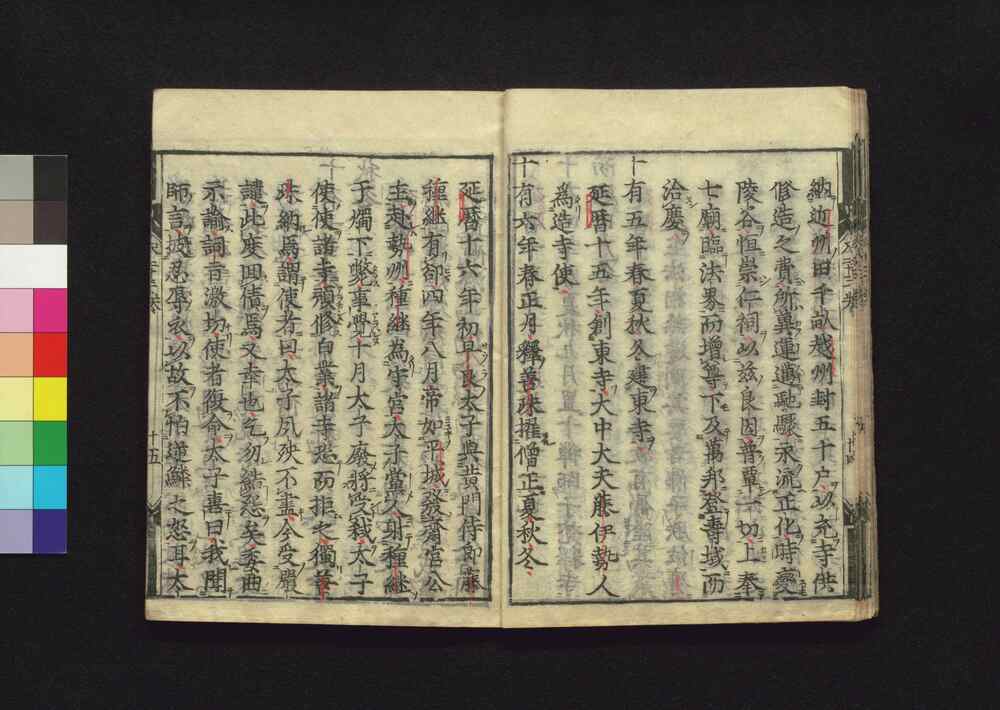 納近州田千畝越州封五十戸以充寺供
修造之費所冀運邁馳驟永流正化時變
陵谷恒崇仁祠以茲良因普覃一切上奉
七廟臨法界而增尊下及萬邦登壽域而
洽慶
十有五年春夏秋冬建東寺
延曆十五年創東寺大中大夫藤伊勢人
為造寺使
十有六年春正月釋善珠擢僧正夏秋冬
延曆十六年初早良太子與黃門侍郎藤
種継有郤四年八月帝如平城發齋宮公
主赴勢州種継為守宮太子當人射種継
于燭下斃事覺十月太子廢將受戮太子
使使諸寺預修白業諸寺愁而拒之獨善
珠納焉謂使者曰太子夙殃不盡今受嚴
譴此度囘債焉又幸也乞勿結怨矣委曲
示諭詞音激切使者復命太子喜曰我聞
師言披忍辱衣以故不怕逆鱗之怒耳太
十五